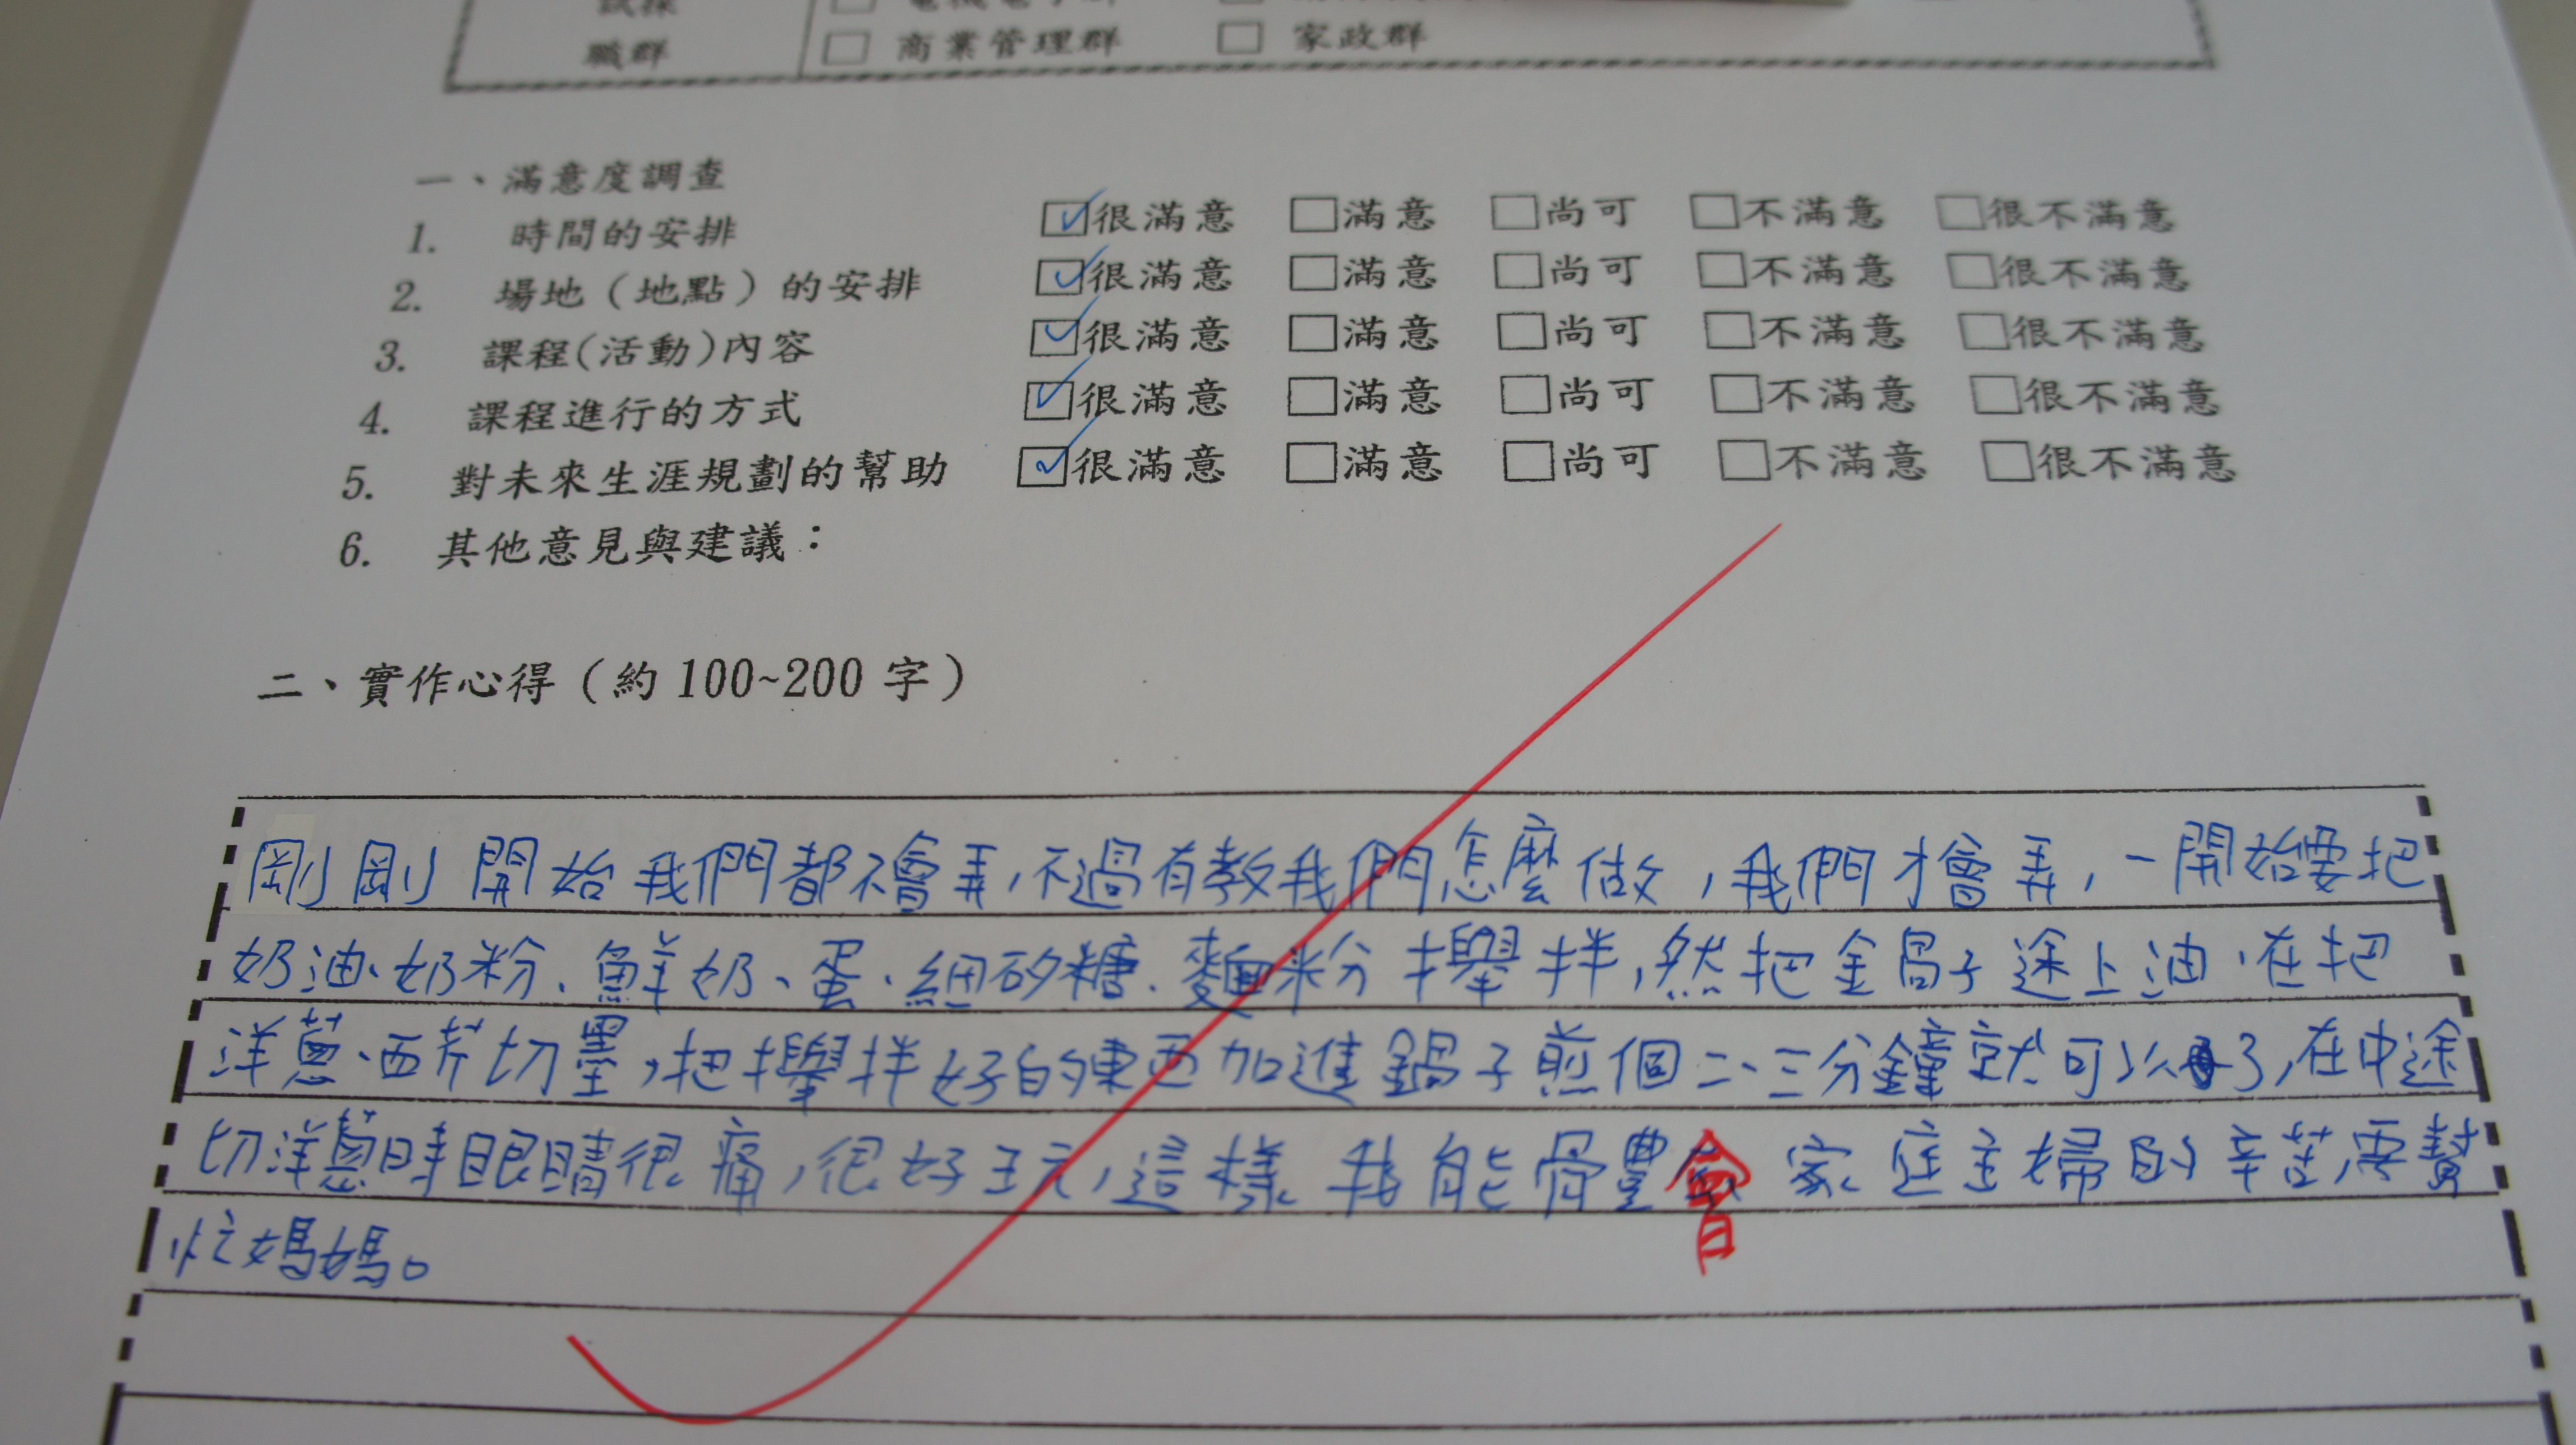 職群 □ 商業管理群 □ 家政群
一、滿意度調查
1. 時間的安排 ☑很滿意 □滿意 □尚可 □不滿意 □很不滿意
2. 場地（地點）的安排 ☑很滿意 □滿意 □尚可 □不滿意 □很不滿意
3. 課程(活動)內容 ☑很滿意 □滿意 □尚可 □不滿意 □很不滿意
4. 課程進行的方式 ☑很滿意 □滿意 □尚可 □不滿意 □很不滿意
5. 對未來生涯規劃的幫助 ☑很滿意 □滿意 □尚可 □不滿意 □很不滿意
6. 其他意見與建議：
二、實作心得（約100~200字）
剛剛開始我們都不會弄,不過有教我們怎麼做,我們才會弄,一開始要把
奶油、奶粉、鮮奶、蛋、細砂糖、麵粉攪拌,然把鍋子塗上油,在把
洋蔥、西芹切墨,把攪拌好的東西加進鍋子煎個二、三分鐘就可以了,在中途
切洋蔥時眼睛很痛,很好玩,這樣我能體會家庭主婦的辛苦,需幫
忙媽媽。